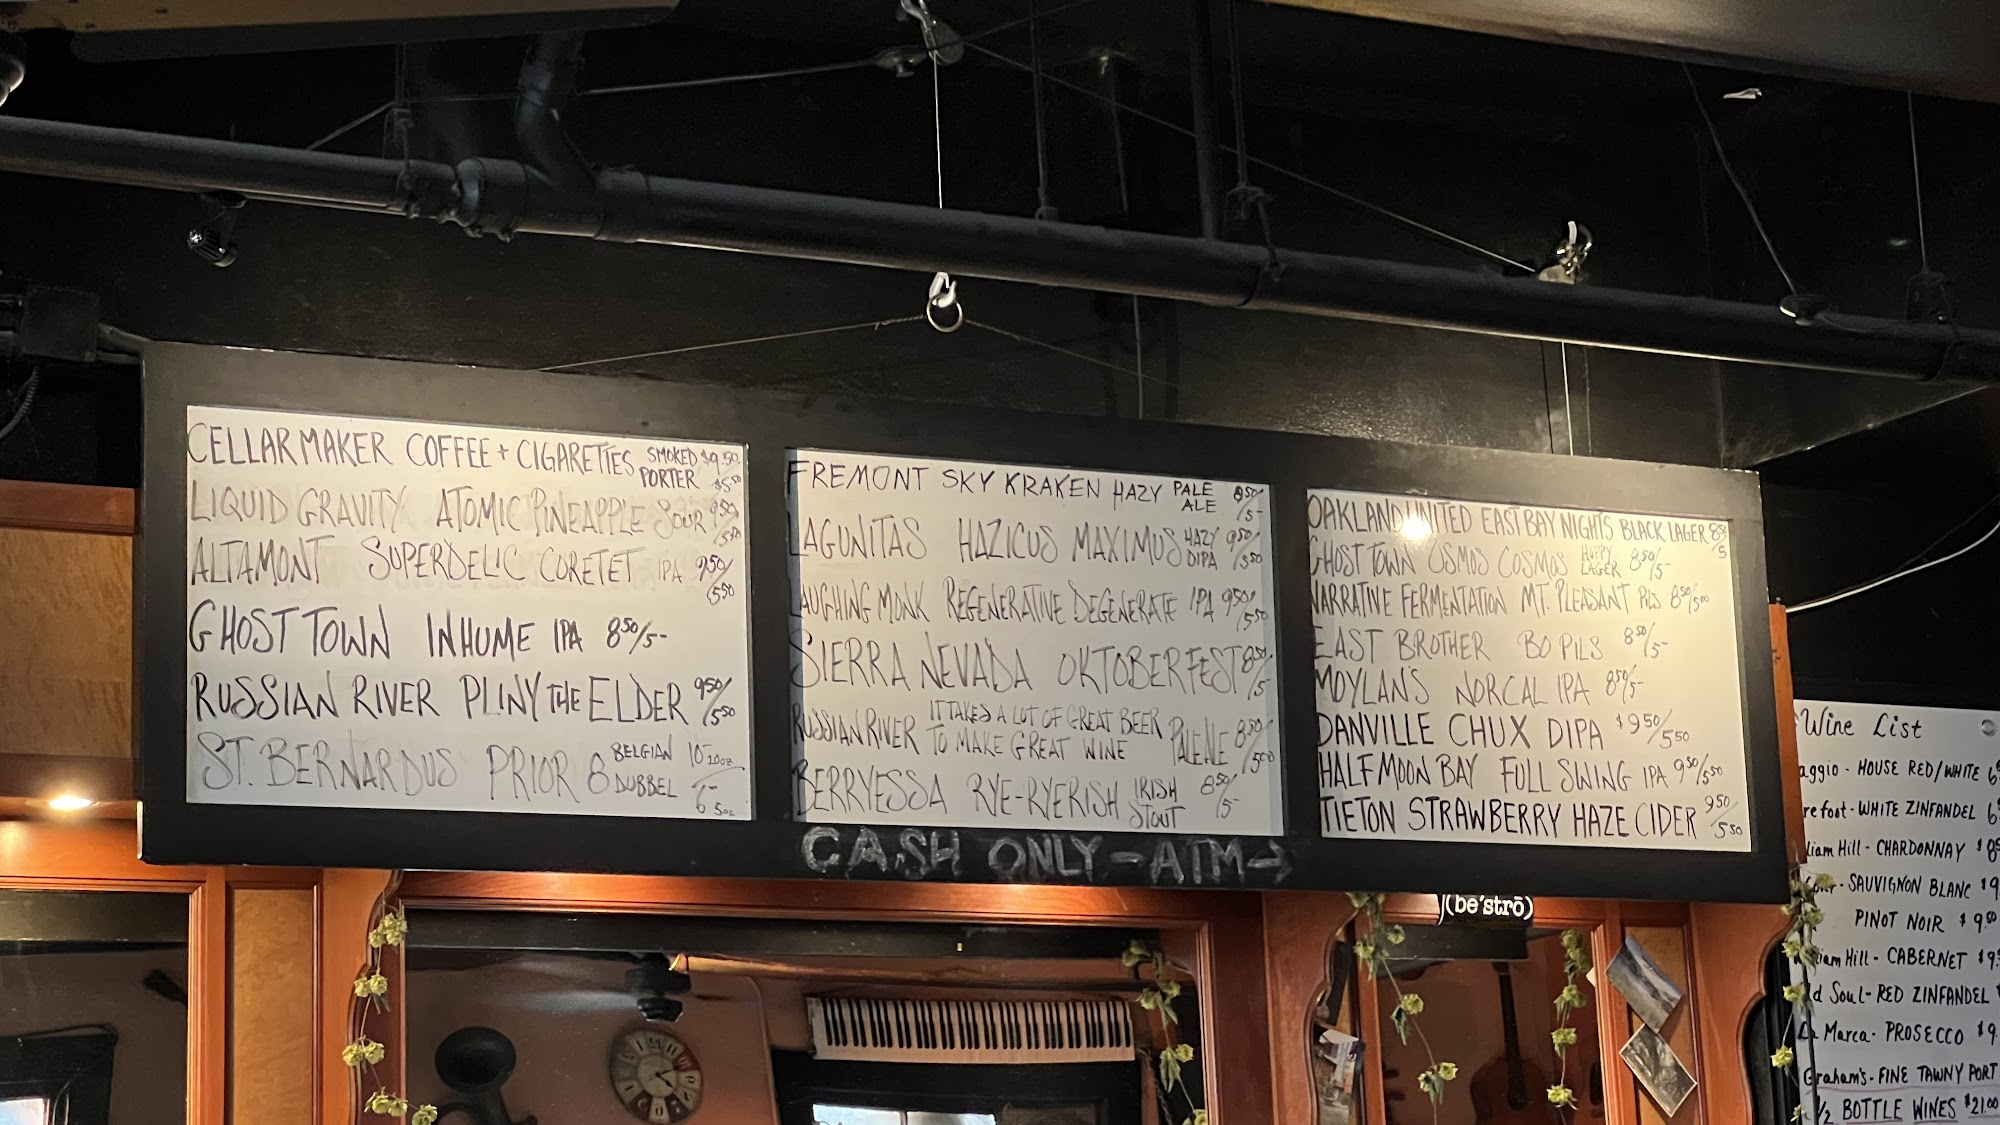 CELLARMAKER COFFEE + CIGARETTES SMOKED PORTER $9.50/$5.50
LIQUID GRAVITY ATOMIC PINEAPPLE SOUR 9.50/5.50
ALTAMONT SUPERDELIC CORETET IPA 9.50/5.50
GHOST TOWN INHUME IPA 8.50/5-
RUSSIAN RIVER PLINY THE ELDER 9.50/5.50
ST. BERNARDUS PRIOR 8 BELGIAN DUBBEL 10- 10oz/6- 5oz
FREMONT SKY KRAKEN HAZY PALE ALE 8.50/5-
LAGUNITAS HAZICUS MAXIMUS HAZY DIPA 9.50/5.50
LAUGHING MONK REGENERATIVE DEGENERATE IPA 9.50/5.50
SIERRA NEVADA OKTOBERFEST 8.50/5-
RUSSIAN RIVER IT TAKES A LOT OF GREAT BEER TO MAKE GREAT WINE PALE ALE 8.50/5.00
BERRYESSA RYE-RYERISH IRISH STOUT 8.50/5-
OAKLAND UNITED EAST BAY NIGHTS BLACK LAGER 8.50/5
GHOST TOWN OSMOS COSMOS HOPPY LAGER 8.50/5-
NARRATIVE FERMENTATION MT. PLEASANT PILS 8.50/5.00
EAST BROTHER BO PILS 8.50/5-
MOYLAN'S NORCAL IPA 8.50/5-
DANVILLE CHUX DIPA $9.50/5.50
HALF MOON BAY FULL SWING IPA 9.50/5.50
TIETON STRAWBERRY HAZE CIDER 9.50/5.50
CASH ONLY - ATM →
(be'strō)
Wine List
aggio - HOUSE RED/WHITE 6
refoot - WHITE ZINFANDEL 6
liam Hill - CHARDONNAY $8
- SAUVIGNON BLANC $9
PINOT NOIR $9.50
iam Hill - CABERNET $9
ld Soul - RED ZINFANDEL
La Marca - PROSECCO $9
Graham's - FINE TAWNY PORT
1/2 BOTTLE WINES $21.00